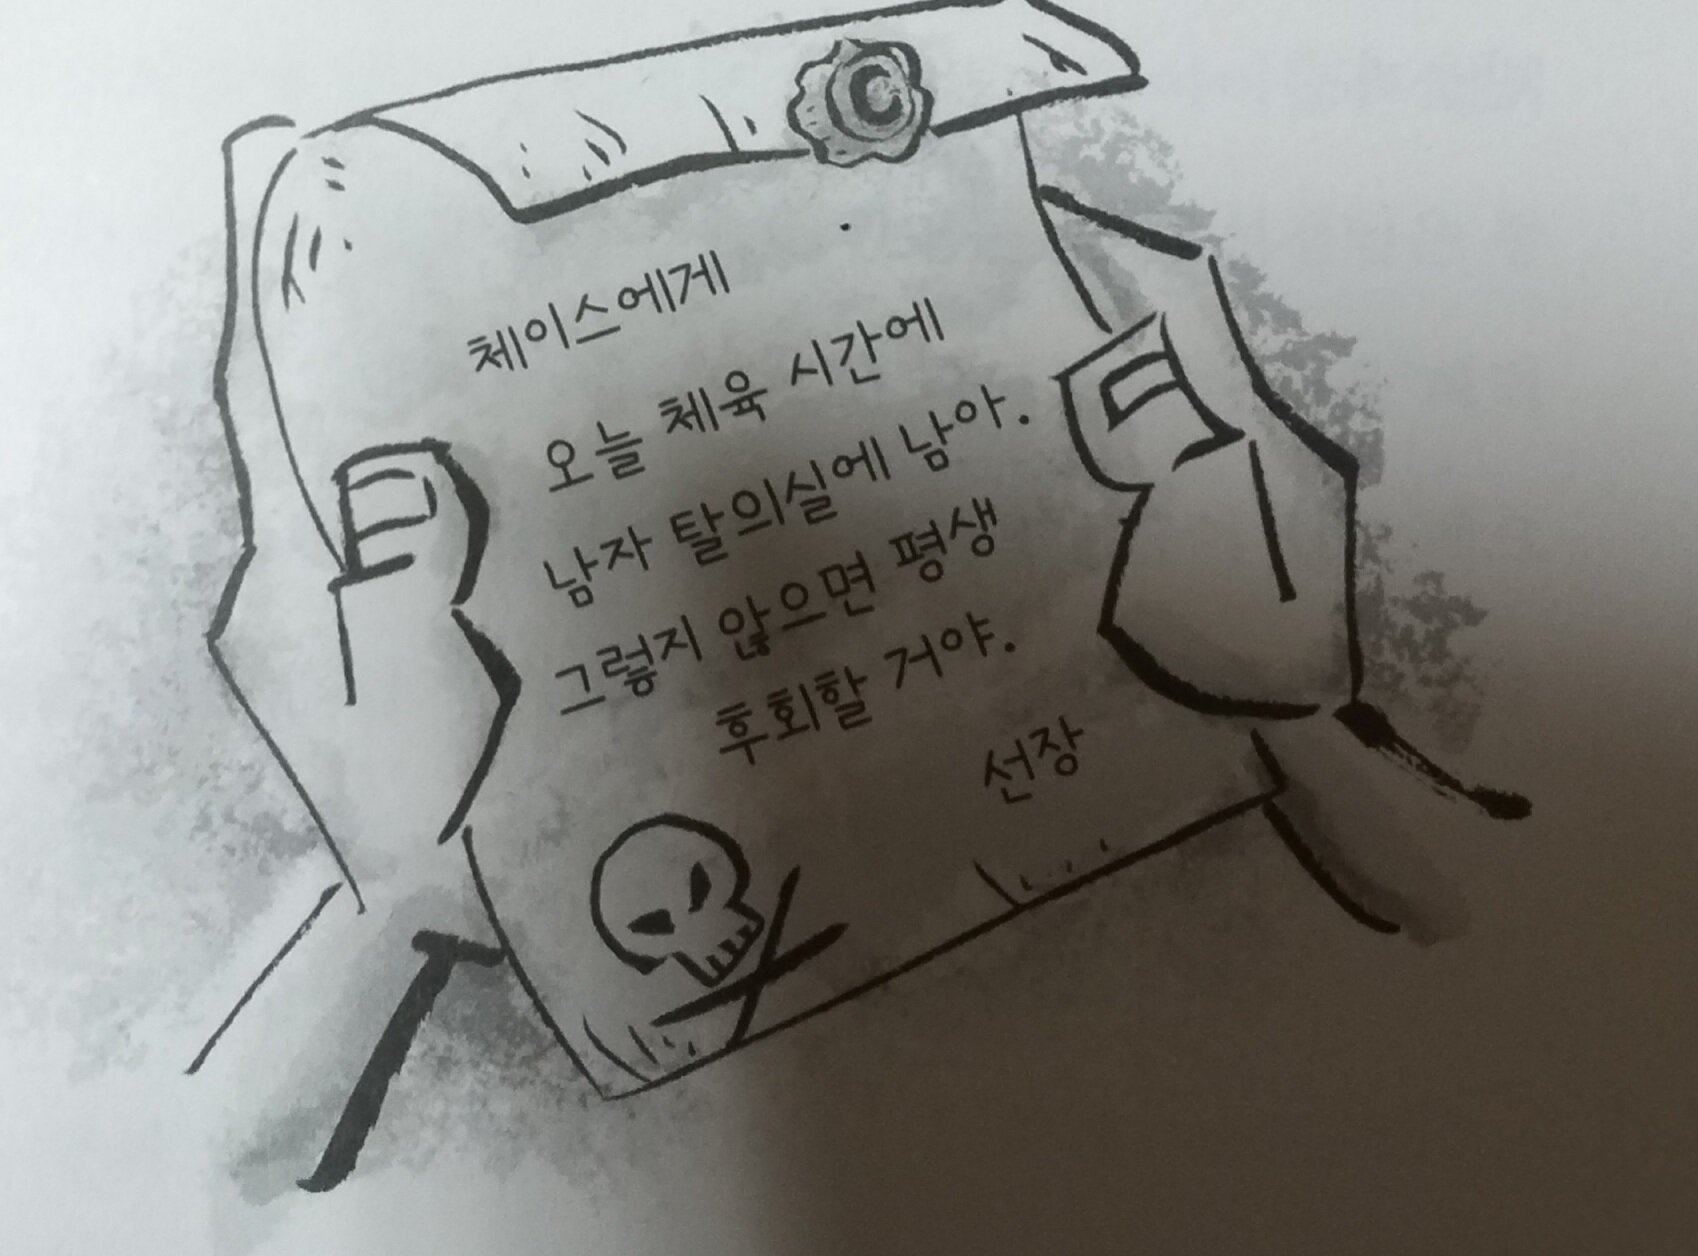 C
체이스에게
오늘 체육 시간에
남자 탈의실에 남아.
그렇지 않으면 평생
후회할 거야.
선장